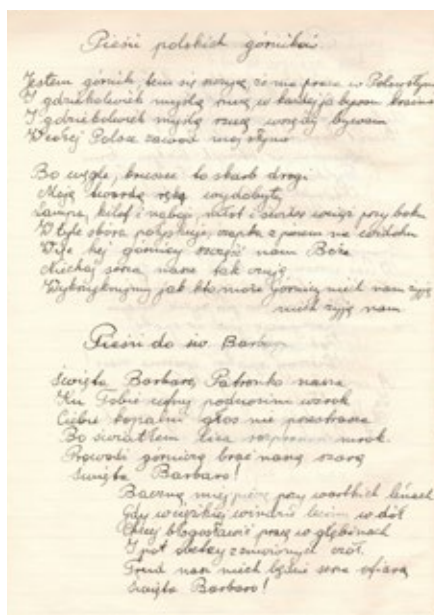 Pieśń polskich górników
Jestem górnik tem się szczycę że ma praca w Polsce słynie
I gdziekolwiek myślą rzucę w każdej ja bywam krainie
I gdziekolwiek myślą rzucę wszędy bywam
W całej Polsce zawód mój słynie
Bo węgle, kruszec to skarb drogi
Moją twardą ręką wydobyty
Lampa, kilof i naboje, młot i świder wciąż przy boku
W tyle skóra połyskuje, czapka z piórem na widoku
Więc hej górnicy szczęść nam Boże
Niechaj serca nasze tak czują
Wykrzyknijmy jak kto może górnicy niech nam żyją
niech żyją nam
Pieśń do św. Barbary
Święta Barbaro, Patronko nasza
Ku Tobie ufny podnosim wzrok
Ciebie kopalni głos nie przestrasza
Bo światłem lica rozpraszasz mrok.
Prowadź górniczą brać naszą szarą
Święta Barbaro!
Baczną miej pieczę przy wartkich linach
Gdy w ciężkiej windzie lecim w dół
Chciej błogosławić pracę w głębinach
I pot znużonych czół.
Trud nasz niech będzie serc ofiarą
Święta Barbaro!